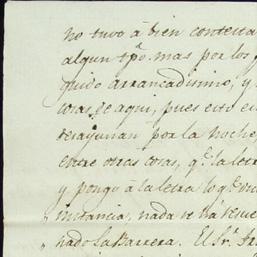 no tuvo à bien contesta
algun tpo. mas por los
quido arrancadisimo, y
cosas de aqui, pues esto e
desayunan por la noche
entre otras cosas, qe. la letr
y pongo à la letra lo qe.
instancia, nada se há resue
nado La Barrera. El Sr.